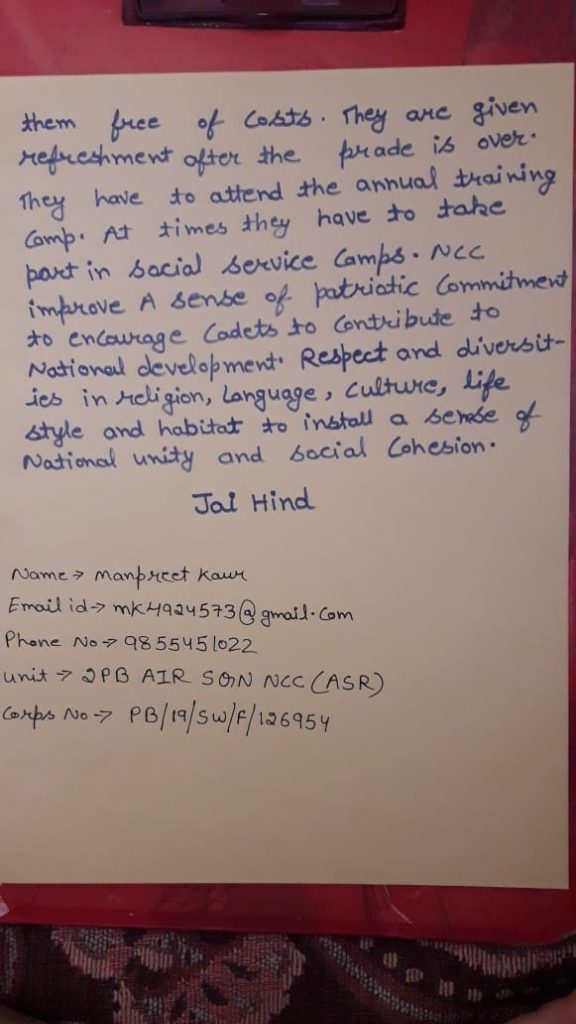 them free of Costs. They are given
refreshment after the prade is over.
They have to attend the annual training
Camp. At times they have to take
part in social service Camps. NCC
improve A sense of patriotic Commitment
to encourage Cadets to Contribute to
National development. Respect and diversit-
ies in religion, Language, Culture, life
style and habitat to install a sense of
National unity and social Cohesion.
Jai Hind
Name → Manpreet Kaur
Email id → mk4924573@gmail.com
Phone No → 9855451022
unit → 2PB AIR SQN NCC (ASR)
Corps No → PB/19/SW/F/126954